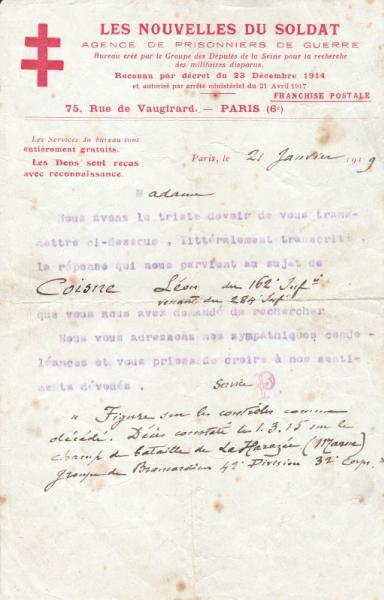 LES NOUVELLES DU SOLDAT
AGENCE DE PRISONNIERS DE GUERRE
Bureau créé par le Groupe des Députés de la Seine pour la recherche
des militaires disparus.
Reconnu par décret du 23 Décembre 1914
et autorisé par arrêté ministériel du 21 Avril 1917
FRANCHISE POSTALE
75, Rue de Vaugirard. — PARIS (6e)
Les Services du bureau sont
entièrement gratuits.
Les Dons sont reçus
avec reconnaissance.
Paris, le 21 Janvier 1919
Madame
Nous avons le triste devoir de vous trans-
mettre ci-dessous, littéralement transcrite,
la réponse qui nous parvient au sujet de
COISNE Léon du 162e Inf ie
venant du 284 Inf ie
que vous nous avez demandé de rechercher
Nous vous adressons nos sympathiques condo-
léances et vous prions de croire à nos senti-
ments dévoués.
Service P.
" Figure sur les contrôles comme
décédé. Décès constaté le 1.3.15 sur le
champ de bataille de La Harazée (Marne)
groupe de Brancardiers 42e Division 32e Corps. "